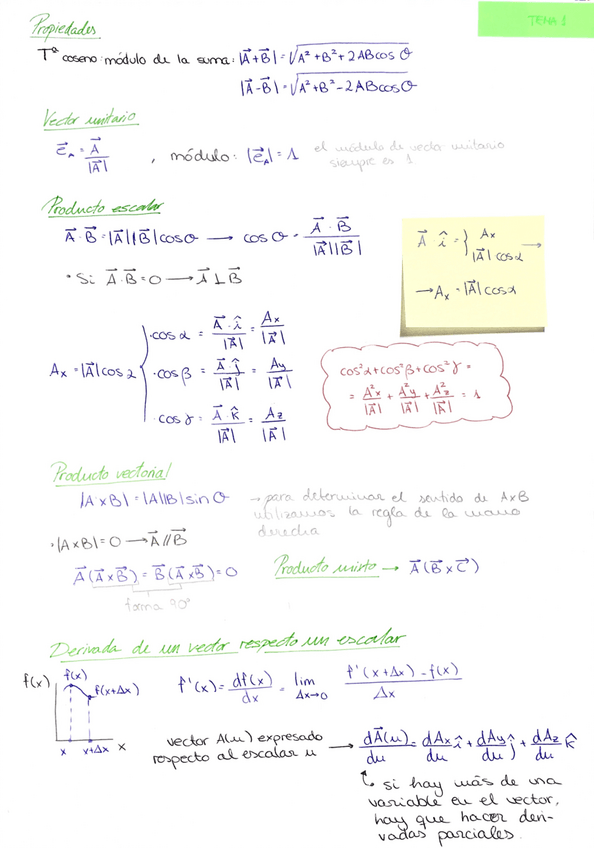 TEMA 1
Propiedades
Tª coseno: módulo de la suma: |A⃗+B⃗| = √A²+B²+2ABcos θ
|A⃗-B⃗| = √A²+B²-2ABcosθ
Vector unitario
e⃗ₐ = A⃗/|A⃗| , módulo: |e⃗ₐ| = 1 el módulo de vector unitario
siempre es 1
Producto escalar
A⃗·B⃗ = |A⃗||B⃗|cosθ → cos θ = A⃗·B⃗/|A⃗||B⃗|
• Si A⃗·B⃗=0 → A⃗⊥B⃗
A⃗ î = { Ax
|A⃗| cos α →
→ Ax = |A⃗| cos α
Ax = |A⃗|cos α { ·cos α = A⃗·î/|A⃗| = Ax/|A⃗|
·cos β = A⃗·ĵ/|A⃗| = Ay/|A⃗|
·cos γ = A⃗·k̂/|A⃗| = Az/|A⃗|
cos²α+cos²β+cos²γ =
= A²x/|A⃗| + A²y/|A⃗| + A²z/|A⃗| = 1
Producto vectorial
|A×B| = |A||B|sin θ → para determinar el sentido de A×B
utilizamos la regla de la mano
derecha
·|A×B| = 0 → A⃗//B⃗
A⃗(A⃗×B⃗) = B⃗(A⃗×B⃗) = 0
forma 90º
Producto mixto → A⃗(B⃗×C⃗)
Derivada de un vector respecto un escalar
f(x) f(x) f(x+Δx)
x x+Δx x
f'(x) = df(x)/dx = lim Δx→0 f'(x+Δx)-f(x)/Δx
vector A(u) expresado
respecto al escalar u → dA⃗(u)/du = dAx/du î + dAy/du ĵ + dAz/du k̂
↳ si hay más de una
variable en el vector,
hay que hacer deri-
vadas parciales.